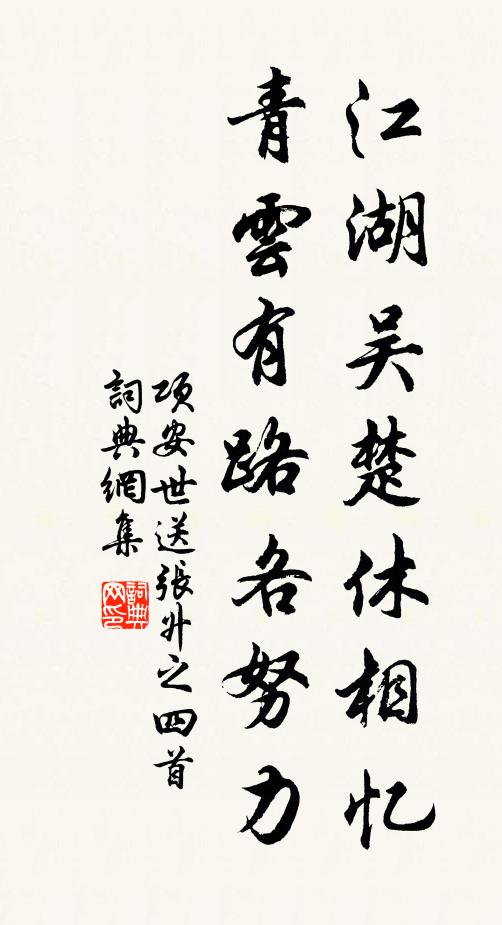 江湖吴楚休相忆
青雲有路各努力
项安世送張升之四首
詞典網集
詞典网印